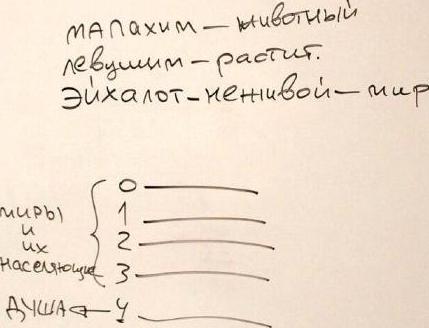 малахим — животный
левушим — растит.
эйхалот — неживой — мир
0
миры 1
и 2
их
населяющие 3
душа 4